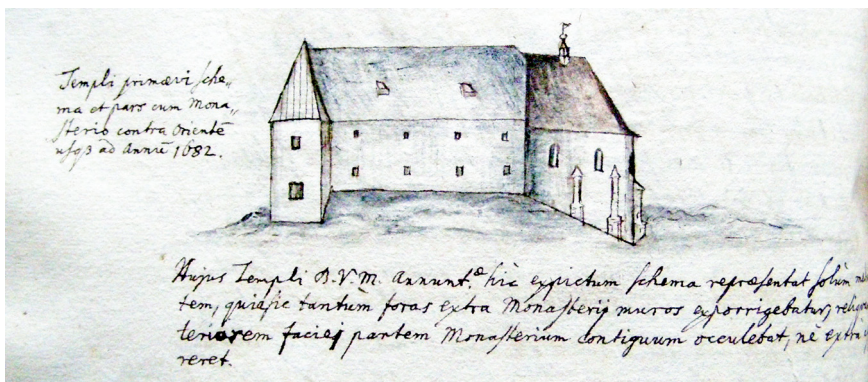 Templi primævi sche„
ma et pars cum Mona„
sterio contra Orientē
usqȝ ad Annū 1682.
Hujus Templi B.V.M. Annunt.æ hic expictum schema repræsentat solùm
tem, quia sic tantùm foras extra Monasterij muros exporrigebatur,
teriorem faciej partem Monasterium contiguum occulebat, nè extra
reret.